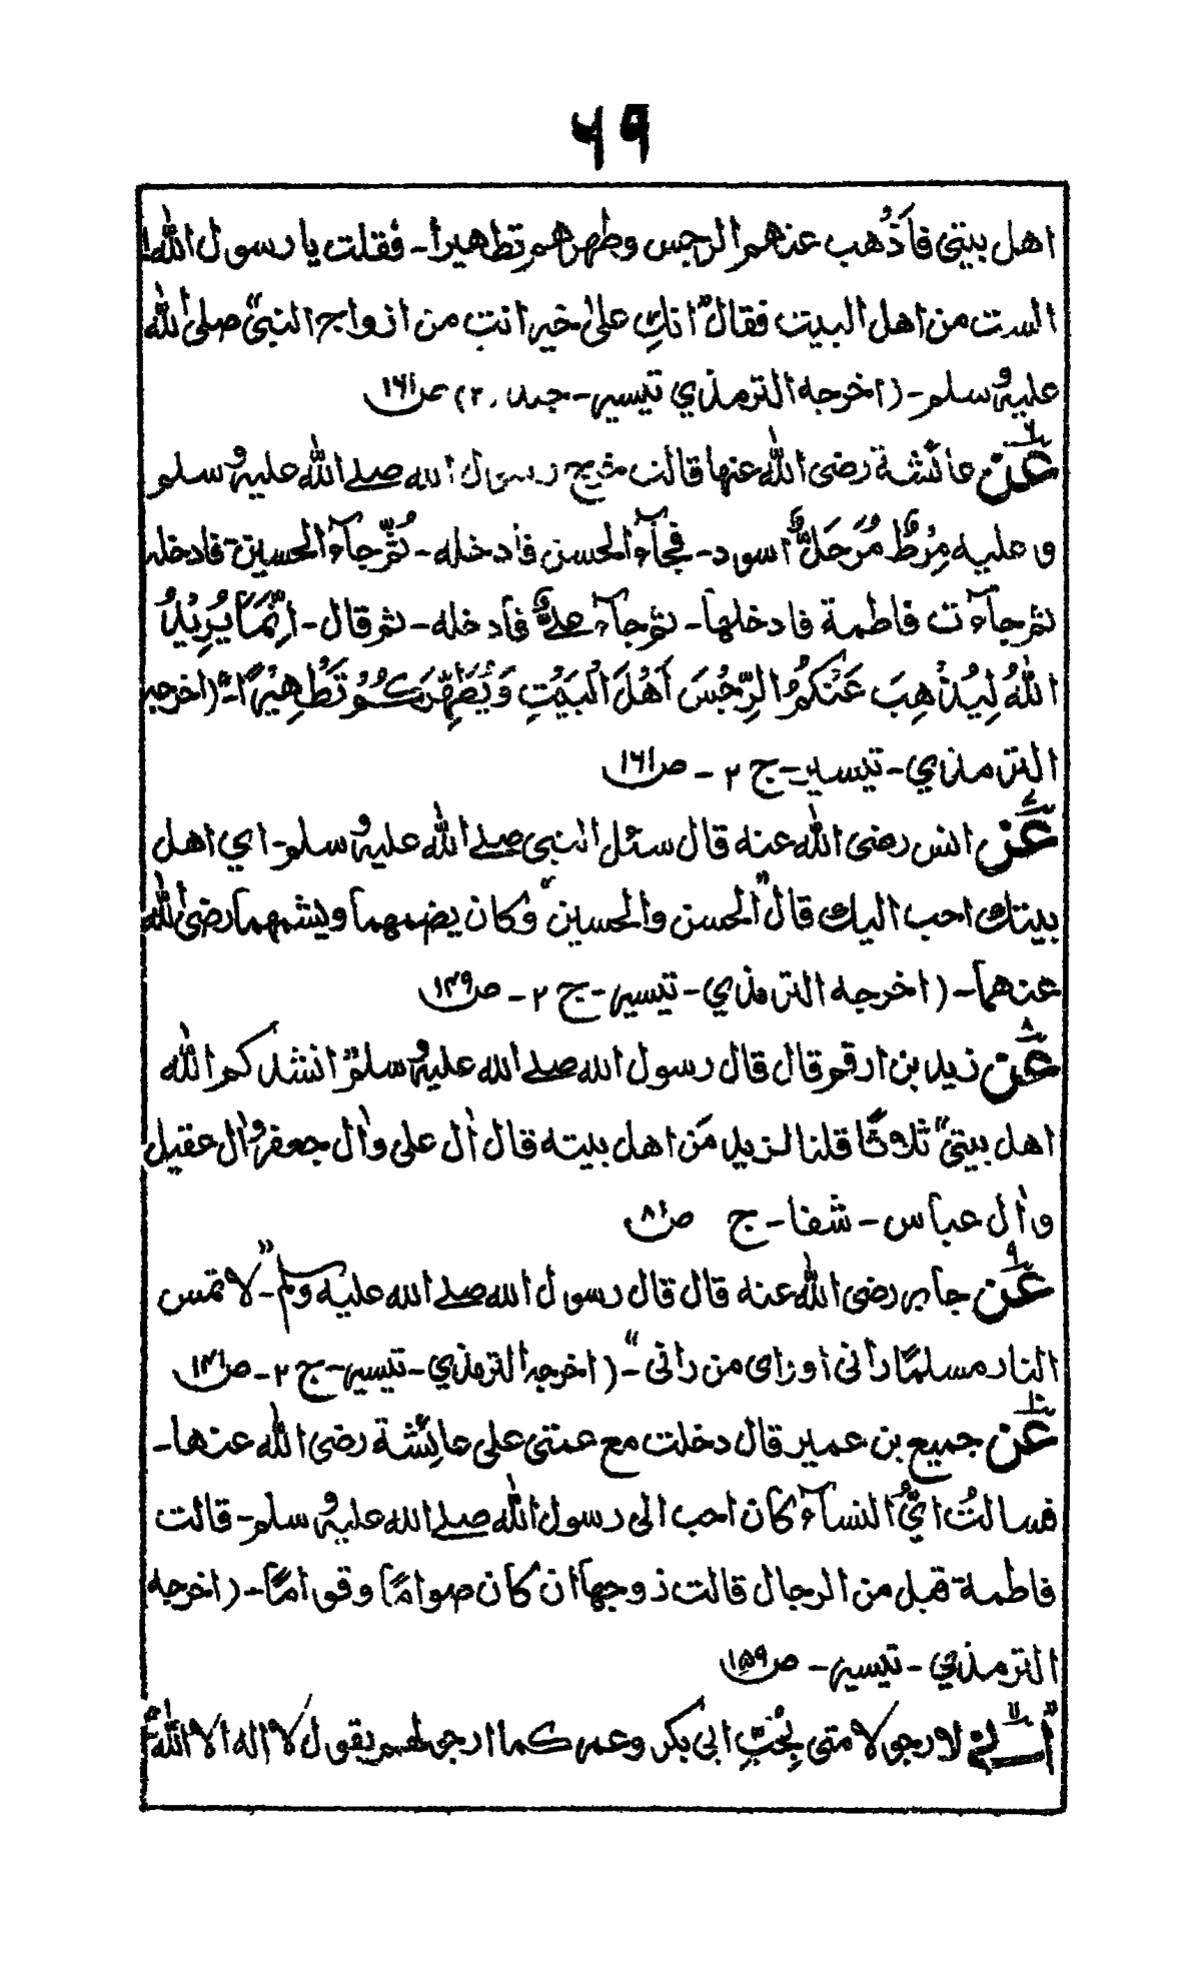 ۶۹
اهل بیتی فاَذْهب عنهم الرجس وطهرهم تطهیرا۔ فقلت یا رسول الله!
الست من اهل البیت فقال" انكِ علیٰ خیر انتِ من ازواج النبیّ" صلی الله
علیه وسلم۔ (اخرجه الترمذي تیسیر۔ جلد ۲۰) ص۱۶۱
۶ عن عائشة رضی الله عنها قالت خرج رسول الله صلے الله علیه وسلم
و علیه مِرْطٌ مُرَحَلٌّ اسود۔ فجآء الحسن فادخله۔ ثمّ جآء الحسین فادخله
ثم جآءت فاطمة فادخلها۔ ثم جآء علیٌّ فادخله۔ ثم قال۔ اِنَّمَا یُرِیْدُ
اللهُ لِیُذْهِبَ عَنْكُمُ الرِّجْسَ اَهْلَ الْبَیْتِ وَیُطَهِّرَكُمْ تَطْهِیْرًا۔" (اخرجه
الترمذي۔ تیسیر۔ ج ۲ ۔ ص۱۶۱
۷ عَن انس رضی الله عنه قال سئل النبی صلے الله علیه وسلم۔ اي اهل
بیتك احب الیك قال" الحسن والحسین" وكان یضمهما ویشمهما رضی الله
عنهما۔ (اخرجه الترمذي۔ تیسیر۔ ج ۲ ۔ ص۱۴۹
۸ عَن زید بن ارقم قال قال رسول الله صلے الله علیه وسلم" انشدكم الله
اهل بیتی" ثلاثًا قلنا لزید مَن اهل بیته قال اٰل علی واٰل جعفر واٰل عقیل
واٰل عباس۔ شفا۔ ج ص۸۱
۹ عَن جابر رضی الله عنه قال قال رسول الله صلے الله علیه وسلم۔ "لا تمس
النار مسلمًا راٰنی او راٰی من راٰنی"۔ (اخرجه الترمذي۔ تیسیر۔ ج ۲۔ ص۱۴۱
۱۰ عَن جمیع بن عمیر قال دخلت مع عمتی علی عائِشة رضی الله عنها۔
فسالتُ ايُّ النسآء كان احب الی رسول الله صلے الله علیه وسلم۔ قالت
فاطمة قیل من الرجال قالت زوجها ان كان صوامًا وقوامًا۔ (اخرجه
الترمذي۔ تیسیر۔ ص۱۵۹
۱۱ "اِنّے لارجو لامتی بِحُبِّ ابی بكر وعمر كما ارجو لهم بقول لا اله الا الله"